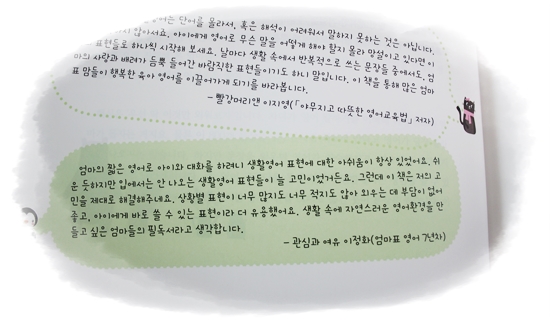 단어를 몰라서, 혹은 해석이 어려워서 말하지 못하는 것은 아닙니다.
않아요. 아이에게 영어로 무슨 말을 어떻게 해야 할지 몰라 망설이고 있다면 이
표현들로 하나씩 시작해 보세요. 날마다 생활 속에서 반복적으로 쓰는 문장들 중에서도, 엄
마의 사랑과 배려가 듬뿍 들어간 바람직한 표현들이기도 하니 말입니다. 이 책을 통해 많은 엄마
표 맘들이 행복한 육아 영어를 이끌어가게 되기를 바라봅니다.
- 빨강머리앤 이지영(「야무지고 따뜻한 영어교육법」 저자)
엄마의 짧은 영어로 아이와 대화를 하려니 생활영어 표현에 대한 아쉬움이 항상 있었어요. 쉬
운 듯하지만 입에서는 안 나오는 생활영어 표현들이 늘 고민이었거든요. 그런데 이 책은 저의 고
민을 제대로 해결해주네요. 상황별 표현이 너무 많지도 너무 적지도 않아 외우는 데 부담이 없어
좋고, 아이에게 바로 쓸 수 있는 표현이라 더 유용했어요. 생활 속에 자연스러운 영어환경을 만
들고 싶은 엄마들의 필독서라고 생각합니다.
- 관심과 여유 이정화(엄마표 영어 7년차)